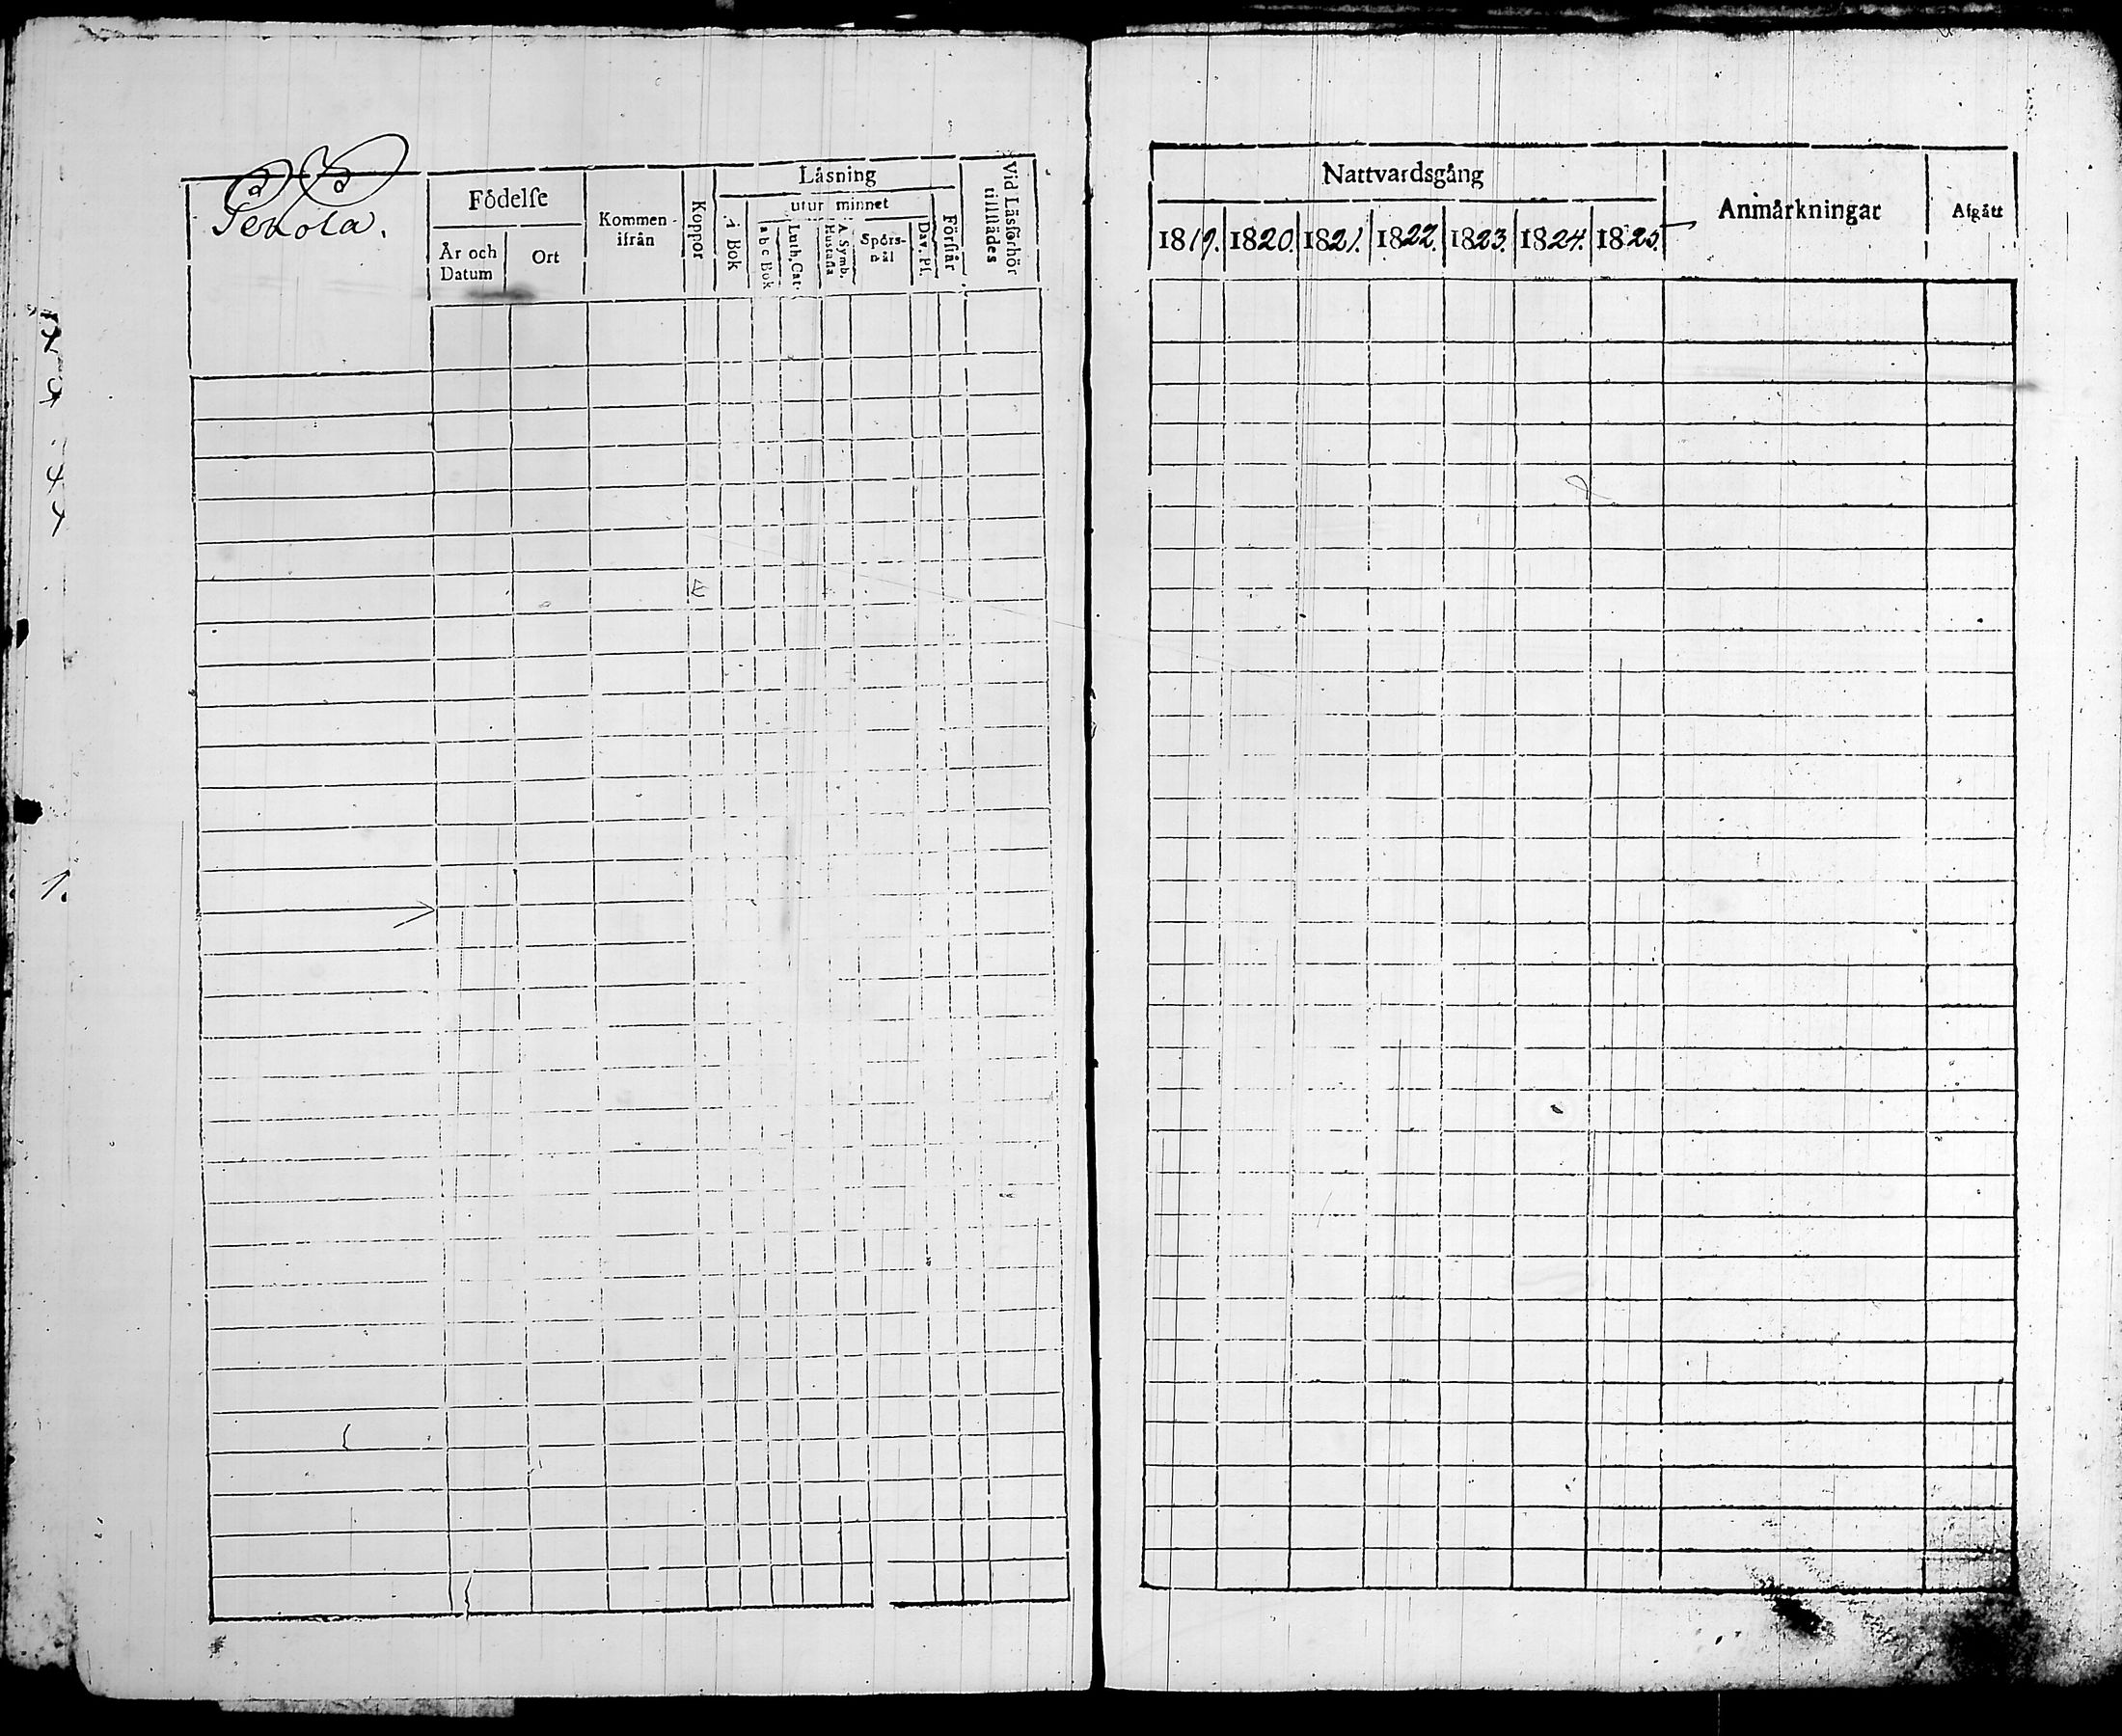 Födelse
År och Datum
Ort
Kommen ifrån
Koppor
Läsning
i Bok
utur minnet
a b c Bok
Luth. Cat.
A. Symb. Hustafla
Spörsmål
Dav. Ps.
Förstår
Vid Läsförhör tillstädes
Nattvardsgång
1819. 1820. 1821. 1822. 1823. 1824. 1825.
Anmärkningar
Afgått